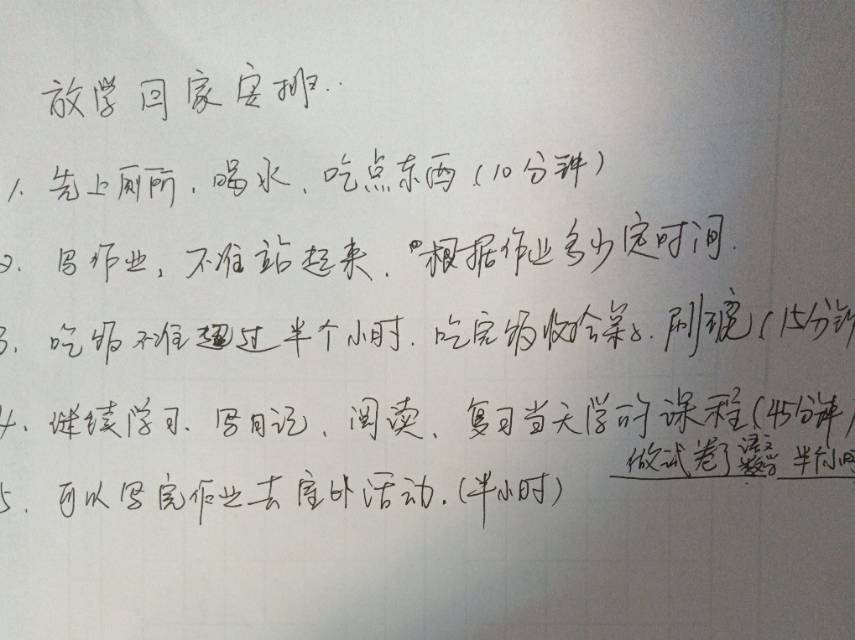 放学回家安排..
1. 先上厕所、喝水、吃点东西(10分钟)
2. 写作业,不准站起来,根据作业多少定时间.
3. 吃饭不准超过半个小时.吃完饭收拾桌子.刷碗(15分钟
4. 继续学习.写日记,阅读、复习当天学的课程(45分钟)
做试卷 语文 数学 半个小时
5. 可以写完作业去室外活动.(半小时)